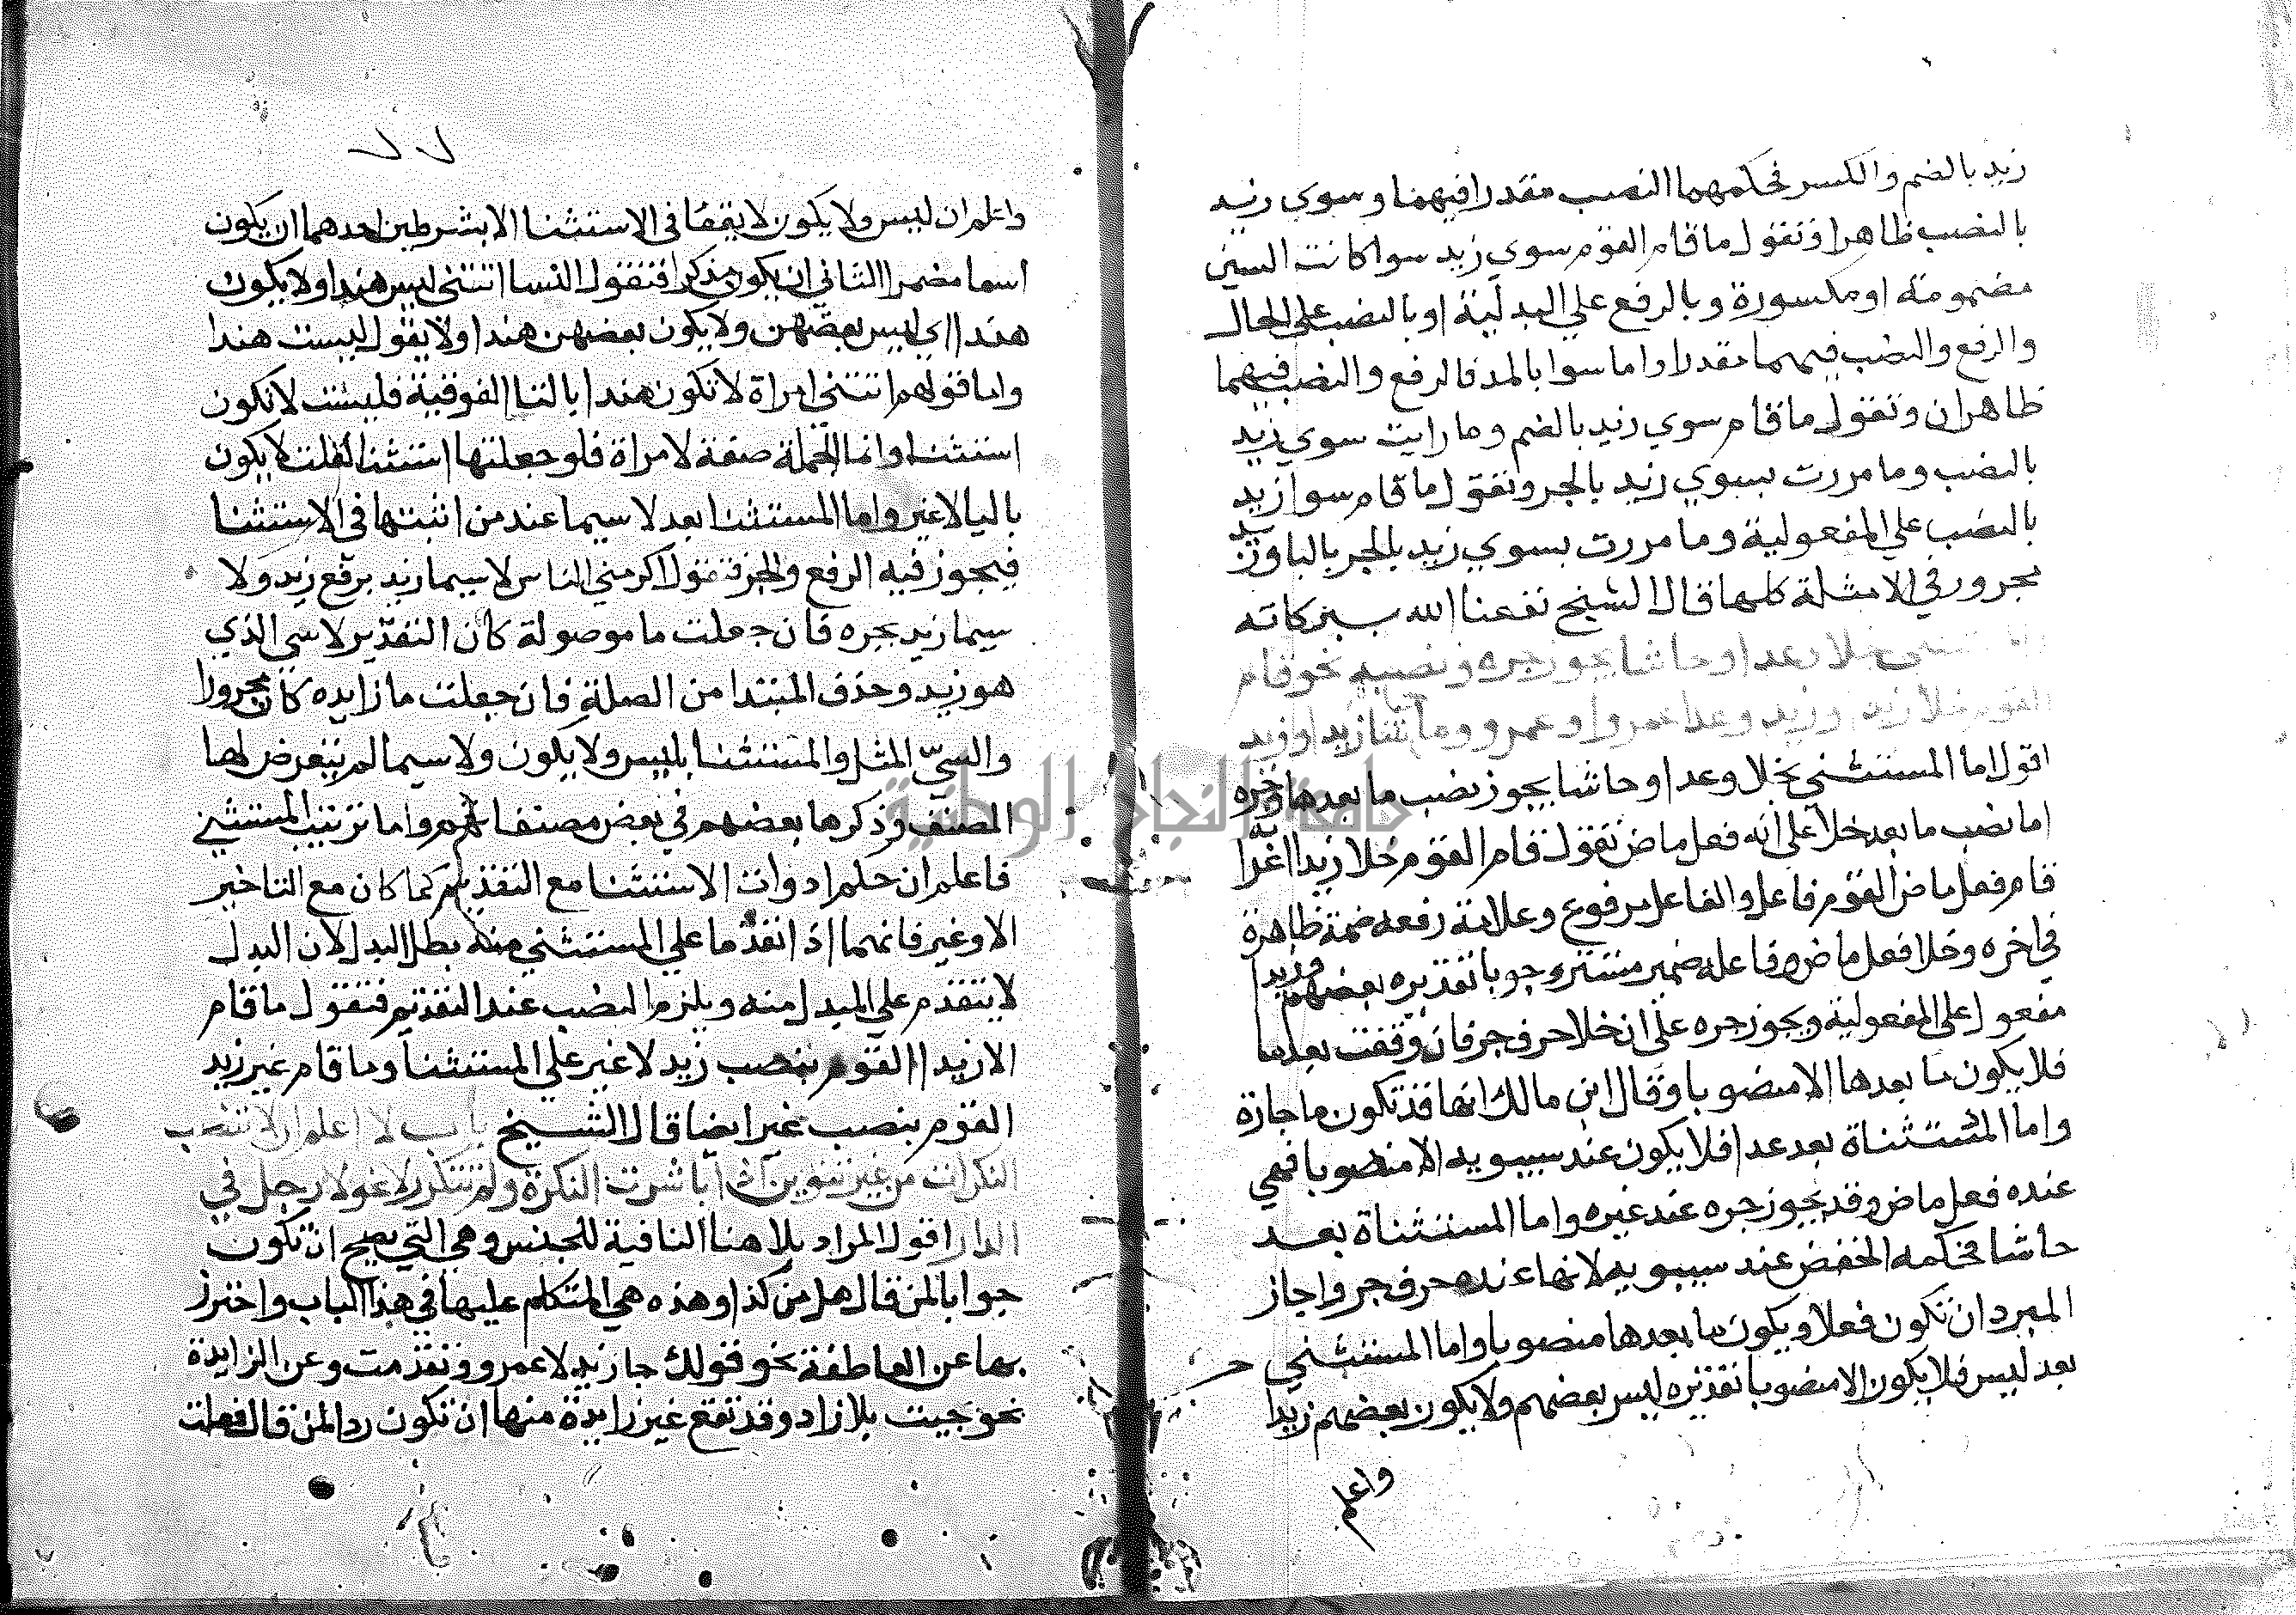 زيد بالضم والكسر فحكمهما النصب مقدرا فيهما وسوي زيد
بالنصب ظاهرا وتقول ما قام القوم سوي زيد سوا كانت السين
مضمومة او مكسورة وبالرفع علي البدلية او بالنصب علي الحال
والرفع والنصب فيهما مقدر واما سوا بالمد فالرفع والنصب فيهما
ظاهران وتقول ما قام سوي زيد بالضم وما رايت سوي زيد
بالنصب وما مررت بسوي زيد بالجر وتقول ما قام سوا زيد
بالنصب علي المفعولية وما مررت بسوي زيد بالجر بالبا وزيد
مجرور في الامثلة كلها قال الشيخ نفعنا الله ببركاته
خلا وعدا وحاشا يجوز جره ونصبه نحو قام
القوم خلا زيد وزيد وعدا عمروا وعمرو وحاشا زيدا وزيد
اقول اما المستثني بخلا وعدا وحاشا يجوز نصب ما بعدها وجره
اما نصب ما بعد خلا علي انه فعل ماض تقول قام القوم خلا زيدا
قام فعل ماض القوم فاعل والفاعل مرفوع وعلامة رفعه ضمة ظاهرة
في اخره وخلا فعل ماض وفاعله ضمير مستتر وجوبا تقديره بعضهم وزيدا
مفعول علي المفعولية ويجوز جره علي ان خلا حرف جر فان وقفت بعد ما
فلا يكون ما بعدها الا منصوبا وقال ابن مالك انها قد تكون ما جازة
واما المستثناة بعد عدا فلا يكون عند سيبويه الا منصوبا فهي
عنده فعل ماض وقد يجوز جره عند غيره واما المستثناة بعد
حاشا فحكمه الخفض عند سيبويه لانها عنده حرف جر واجاز
المبرد ان تكون فعلا ويكون ما بعدها منصوبا واما المستثني
بعد ليس فلا يكون الا منصوبا تقديره ليس بعضهم ولا يكون بعضهم زيدا
واعلم
واعلم ان ليس ولا يكون لا يقعا في الاستثنا الا بشرطين احدهما ان يكون
اسما مضمرا الثاني ان يكون مذكرا فتقول النسا اتتني ليس هندا ولا يكون
هندا اي ليس بعضهن ولا يكون بعضهن هندا ولا يقول ليست هندا
واما قولهم اتتني امراة لا تكون هندا بالتا الفوقية فليست لا تكون
استثنا وانما الجملة صفة لامراة فلو جعلتها استثنا لقلت لا يكون
باليا لا غير واما المستثنا بعد لا سيما عند من اثبتها في الاستثنا
فيجوز فيه الرفع والجر تقول اكرمني الناس لا سيما زيد برفع زيد ولا
سيما زيد بجره فان جعلت ما موصولة كان التقدير لا سي الذي
هو زيد وحذف المبتدا من الصلة فان جعلت ما زايده كان مجرورا
والسيّ المثل والمستثنا بليس ولا يكون ولا سيما لم يتعرض لها
المصنف وذكرها بعضهم في بعض مصنفاتهم واما ترتيب المستثني
فاعلم ان حكم ادوات الاستثنا مع التقديم كما كان مع التاخير
الا وغير فانهما اذا تقدما علي المستثني منه بطل البدل لان البدل
لا يتقدم علي المبدل منه ويلزم النصب عند التقديم فتقول ما قام
الا زيدا القوم بنصب زيد لا غير علي المستثنا وما قام غير زيد
القوم بنصب غير ايضا قال الشيخ باب لا اعلم ان لا تنصب
النكرات من غير تنوين اذا باشرت النكرة ولم تتكرر لا نحو لا رجل في
الدار اقول المراد بلا هنا النافية للجنس وهي التي يصح ان تكون
جوابا لمن قال هل من كذا وهذه هي المتكلم عليها في هذا الباب واحترز
بها عن العاطفة نحو قولك جا زيد لا عمرو وتقدمت وعن الزايدة
نحو جيت بلا زاد وقد تقع غير زايدة منها ان تكون ردا لمن قال فعلت
جامعة النجاح الوطنية